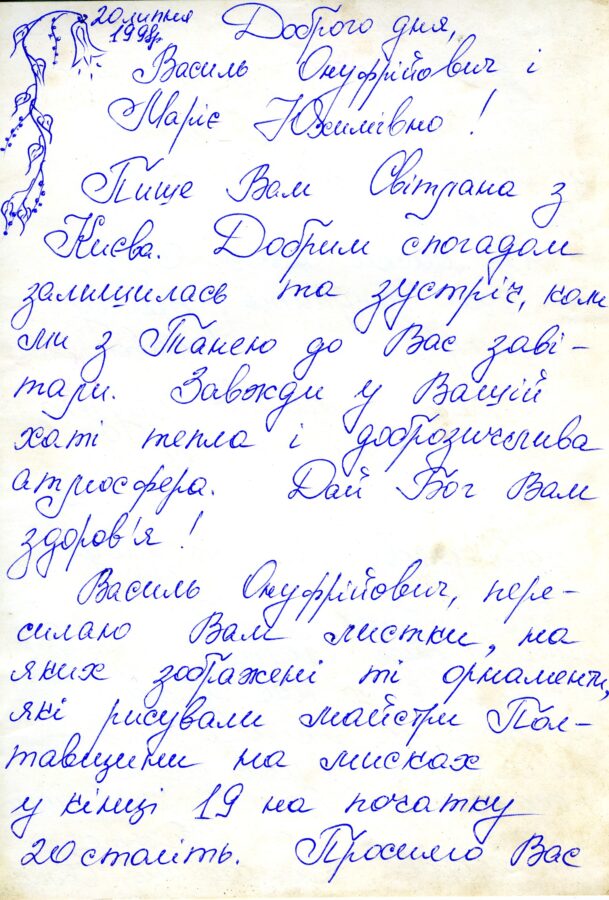 20 липня
1998р.
Доброго дня,
Василь Онуфрійович і
Маріє Юхимівно!
Пише Вам Світлана з
Києва. Добрим спогадом
залишилась та зустріч, коли
ми з Танею до Вас заві-
тали. Завжди у Вашій
хаті тепла і доброзичлива
атмосфера. Дай Бог Вам
здоров'я!
Василь Онуфрійович, пере-
силаю Вам листки, на
яких зображені ті орнаменти,
які рисували майстри Пол-
тавщини на мисках
у кінці 19 на початку
20 століть. Просимо Вас